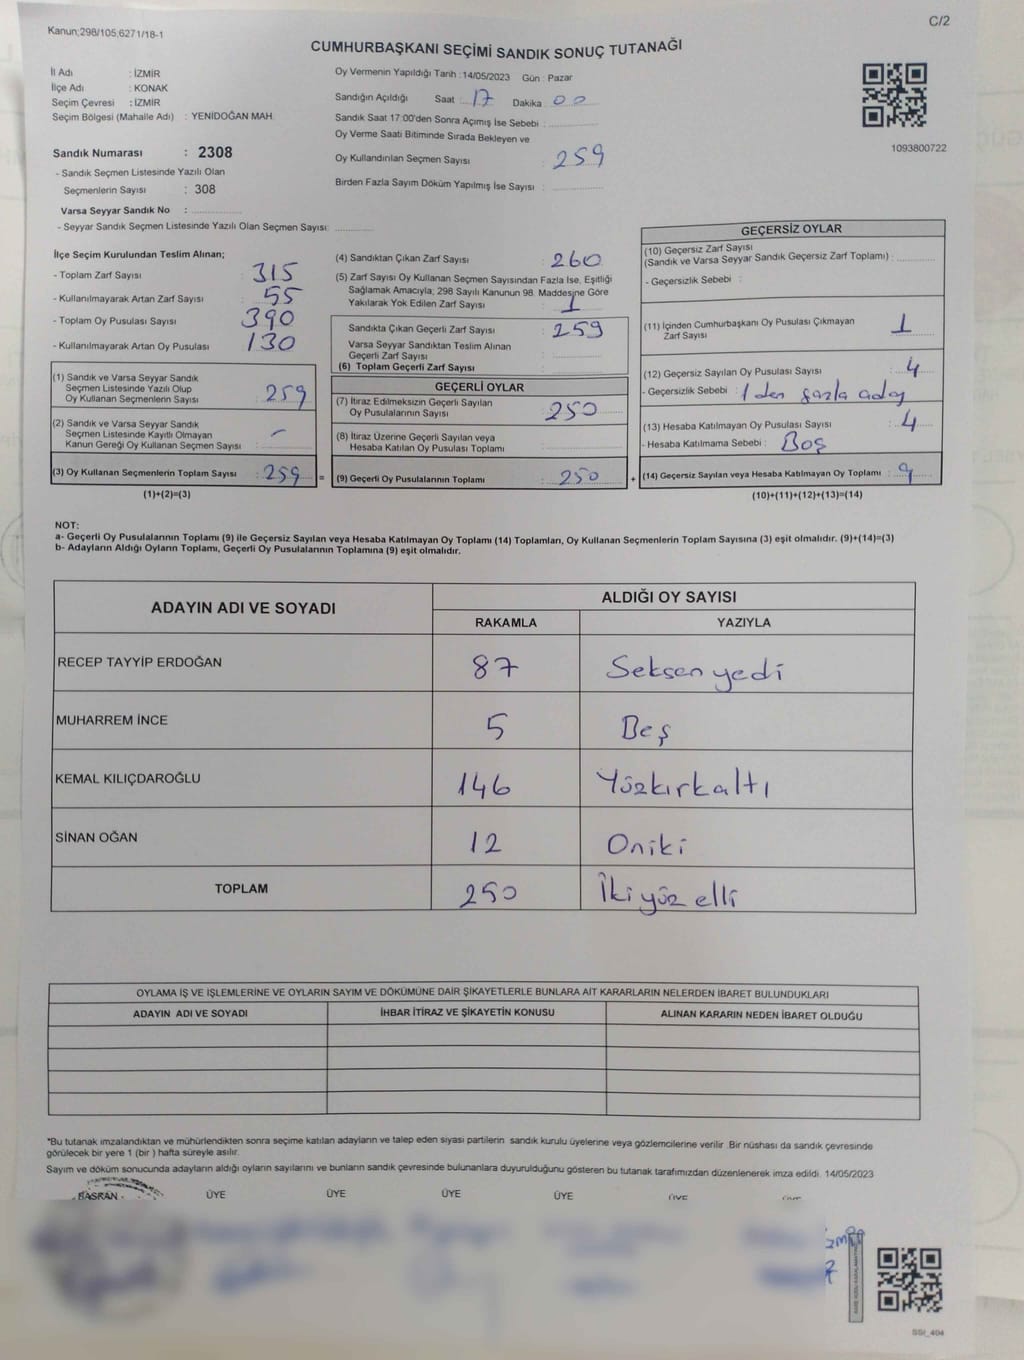 Kanun;298/105,6271/18-1
C/2
CUMHURBAŞKANI SEÇİMİ SANDIK SONUÇ TUTANAĞI
İl Adı : İZMİR
İlçe Adı : KONAK
Seçim Çevresi : İZMİR
Seçim Bölgesi (Mahalle Adı) : YENİDOĞAN MAH.
Sandık Numarası : 2308
- Sandık Seçmen Listesinde Yazılı Olan
Seçmenlerin Sayısı : 308
Varsa Seyyar Sandık No :
- Seyyar Sandık Seçmen Listesinde Yazılı Olan Seçmen Sayısı:
Oy Vermenin Yapıldığı Tarih : 14/05/2023 Gün : Pazar
Sandığın Açıldığı Saat : 17 Dakika 00
Sandık Saat 17:00'den Sonra Açımış İse Sebebi :
Oy Verme Saati Bitiminde Sırada Bekleyen ve
Oy Kullandırılan Seçmen Sayısı : 259
Birden Fazla Sayım Döküm Yapılmış İse Sayısı :
1093800722
İlçe Seçim Kurulundan Teslim Alınan;
- Toplam Zarf Sayısı : 315
- Kullanılmayarak Artan Zarf Sayısı : 55
- Toplam Oy Pusulası Sayısı : 390
- Kullanılmayarak Artan Oy Pusulası : 130
(1) Sandık ve Varsa Seyyar Sandık
Seçmen Listesinde Yazılı Olup
Oy Kullanan Seçmenlerin Sayısı : 259
(2) Sandık ve Varsa Seyyar Sandık
Seçmen Listesinde Kayıtlı Olmayan
Kanun Gereği Oy Kullanan Seçmen Sayısı : -
(3) Oy Kullanan Seçmenlerin Toplam Sayısı : 259 =
(1)+(2)=(3)
(4) Sandıktan Çıkan Zarf Sayısı : 260
(5) Zarf Sayısı Oy Kullanan Seçmen Sayısından Fazla İse, Eşitliği
Sağlamak Amacıyla; 298 Sayılı Kanunun 98. Maddesine Göre
Yakılarak Yok Edilen Zarf Sayısı : 1
Sandıkta Çıkan Geçerli Zarf Sayısı : 259
Varsa Seyyar Sandıktan Teslim Alınan
Geçerli Zarf Sayısı :
(6) Toplam Geçerli Zarf Sayısı :
GEÇERLİ OYLAR
(7) İtiraz Edilmeksizin Geçerli Sayılan
Oy Pusulalarının Sayısı : 250
(8) İtiraz Üzerine Geçerli Sayılan veya
Hesaba Katılan Oy Pusulası Toplamı :
(9) Geçerli Oy Pusulalarının Toplamı : 250 +
GEÇERSİZ OYLAR
(10) Geçersiz Zarf Sayısı
(Sandık ve Varsa Seyyar Sandık Geçersiz Zarf Toplamı) :
- Geçersizlik Sebebi :
(11) İçinden Cumhurbaşkanı Oy Pusulası Çıkmayan
Zarf Sayısı : 1
(12) Geçersiz Sayılan Oy Pusulası Sayısı : 4
- Geçersizlik Sebebi : 1 den fazla aday
(13) Hesaba Katılmayan Oy Pusulası Sayısı : 4
- Hesaba Katılmama Sebebi : Boş
(14) Geçersiz Sayılan veya Hesaba Katılmayan Oy Toplamı : 9
(10)+(11)+(12)+(13)=(14)
NOT:
a- Geçerli Oy Pusulalarının Toplamı (9) ile Geçersiz Sayılan veya Hesaba Katılmayan Oy Toplamı (14) Toplamları, Oy Kullanan Seçmenlerin Toplam Sayısına (3) eşit olmalıdır. (9)+(14)=(3)
b- Adayların Aldığı Oyların Toplamı, Geçerli Oy Pusulalarının Toplamına (9) eşit olmalıdır.
ADAYIN ADI VE SOYADI ALDIĞI OY SAYISI
RAKAMLA YAZIYLA
RECEP TAYYİP ERDOĞAN 87 Seksen yedi
MUHARREM İNCE 5 Beş
KEMAL KILIÇDAROĞLU 146 Yüzkırkaltı
SİNAN OĞAN 12 Oniki
TOPLAM 250 İki yüz elli
OYLAMA İŞ VE İŞLEMLERİNE VE OYLARIN SAYIM VE DÖKÜMÜNE DAİR ŞİKAYETLERLE BUNLARA AİT KARARLARIN NELERDEN İBARET BULUNDUKLARI
ADAYIN ADI VE SOYADI İHBAR İTİRAZ VE ŞİKAYETİN KONUSU ALINAN KARARIN NEDEN İBARET OLDUĞU
*Bu tutanak imzalandıktan ve mühürlendikten sonra seçime katılan adayların ve talep eden siyasi partilerin sandık kurulu üyelerine veya gözlemcilerine verilir. Bir nüshası da sandık çevresinde
görülecek bir yere 1 (bir) hafta süreyle asılır.
Sayım ve döküm sonucunda adayların aldığı oyların sayılarını ve bunların sandık çevresinde bulunanlara duyurulduğunu gösteren bu tutanak tarafımızdan düzenlenerek imza edildi. 14/05/2023
BAŞKAN ÜYE ÜYE ÜYE ÜYE ÜYE ÜYE
SSI_404